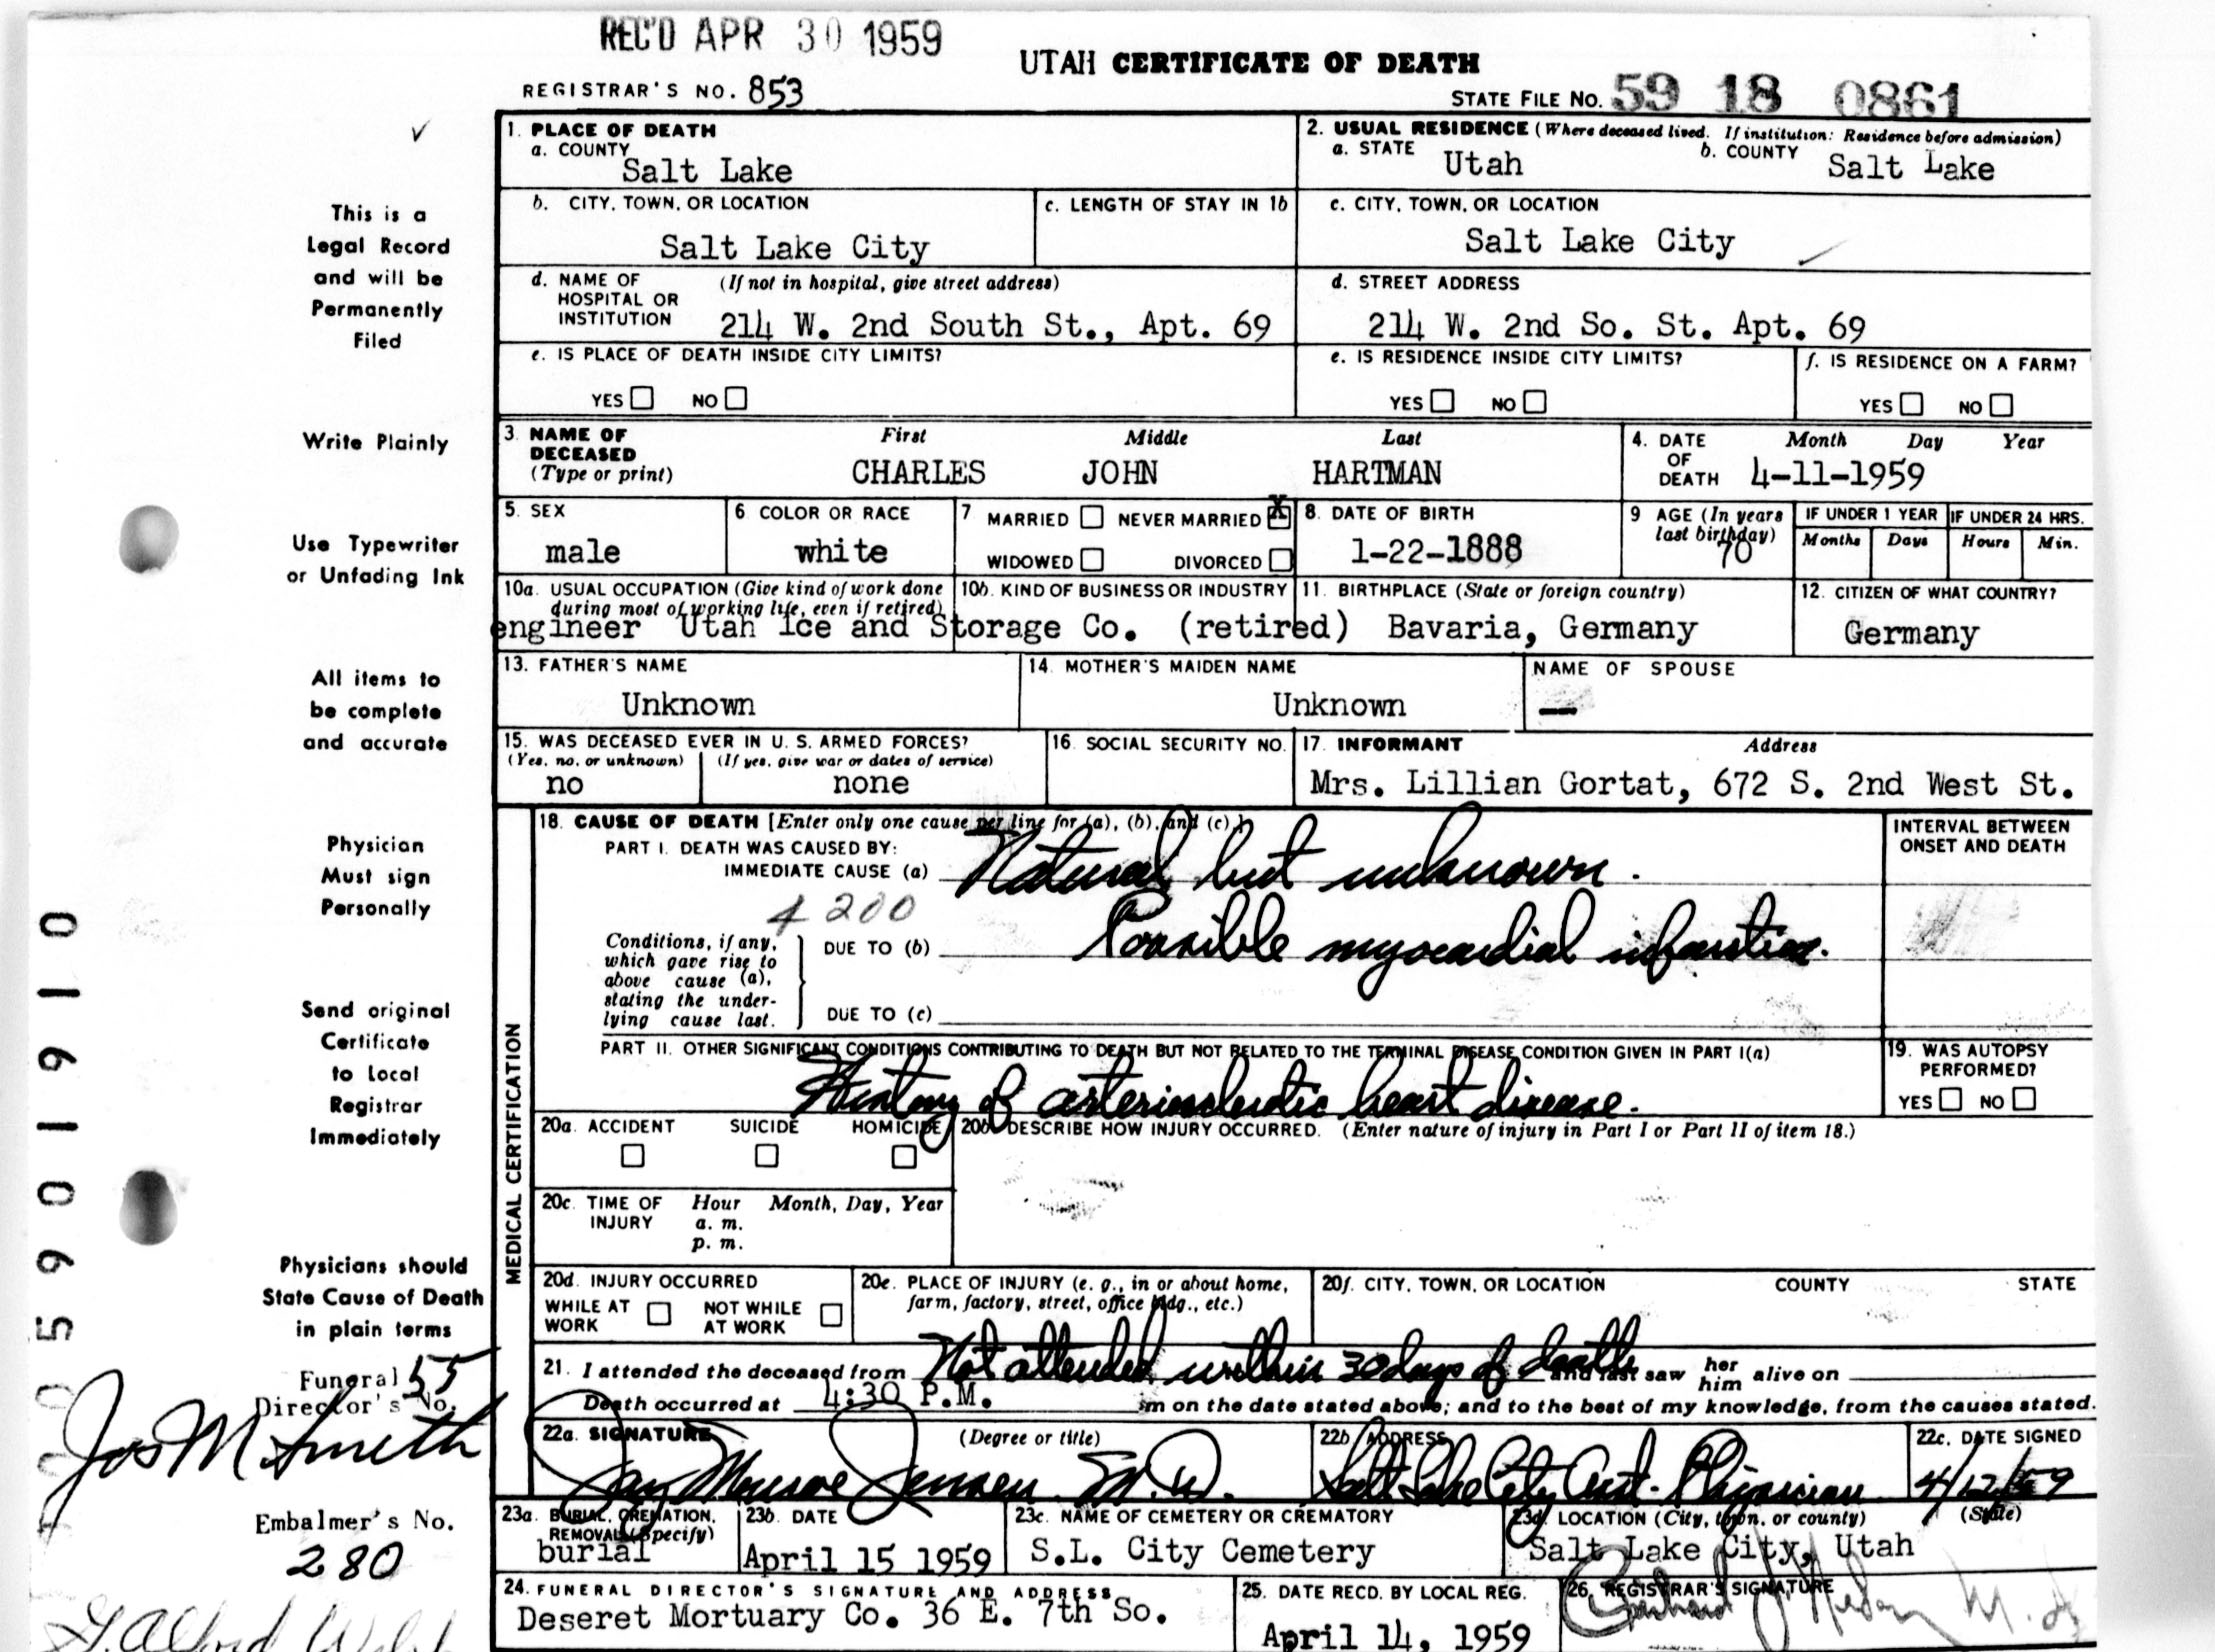 REC'D APR 30 1959
UTAH CERTIFICATE OF DEATH
REGISTRAR'S NO. 853
STATE FILE NO. 59 18 0861
1. PLACE OF DEATH
a. COUNTY
Salt Lake
2. USUAL RESIDENCE (Where deceased lived. If institution: Residence before admission)
a. STATE Utah b. COUNTY Salt Lake
b. CITY, TOWN, OR LOCATION
Salt Lake City
c. LENGTH OF STAY IN 1b
c. CITY, TOWN, OR LOCATION
Salt Lake City
d. NAME OF HOSPITAL OR INSTITUTION (If not in hospital, give street address)
214 W. 2nd South St., Apt. 69
d. STREET ADDRESS
214 W. 2nd So. St. Apt. 69
e. IS PLACE OF DEATH INSIDE CITY LIMITS?
YES NO
e. IS RESIDENCE INSIDE CITY LIMITS?
YES NO
f. IS RESIDENCE ON A FARM?
YES NO
3. NAME OF DECEASED (Type or print)
First Middle Last
CHARLES JOHN HARTMAN
4. DATE OF DEATH Month Day Year
4-11-1959
5. SEX
male
6. COLOR OR RACE
white
7 MARRIED NEVER MARRIED X
WIDOWED DIVORCED
8. DATE OF BIRTH
1-22-1888
9 AGE (In years last birthday)
70
IF UNDER 1 YEAR
Months Days
IF UNDER 24 HRS.
Hours Min.
10a. USUAL OCCUPATION (Give kind of work done during most of working life, even if retired)
10b. KIND OF BUSINESS OR INDUSTRY
engineer Utah Ice and Storage Co. (retired)
11. BIRTHPLACE (State or foreign country)
Bavaria, Germany
12. CITIZEN OF WHAT COUNTRY?
Germany
13. FATHER'S NAME
Unknown
14. MOTHER'S MAIDEN NAME
Unknown
NAME OF SPOUSE
—
15. WAS DECEASED EVER IN U. S. ARMED FORCES?
(Yes, no, or unknown) (If yes, give war or dates of service)
no none
16. SOCIAL SECURITY NO.
17. INFORMANT Address
Mrs. Lillian Gortat, 672 S. 2nd West St.
MEDICAL CERTIFICATION
18. CAUSE OF DEATH [Enter only one cause per line for (a), (b), and (c).]
PART I. DEATH WAS CAUSED BY:
IMMEDIATE CAUSE (a) Natural but unknown.
4200
Conditions, if any, which gave rise to above cause (a), stating the underlying cause last.
DUE TO (b) Possible myocardial infarction.
DUE TO (c)
INTERVAL BETWEEN ONSET AND DEATH
PART II. OTHER SIGNIFICANT CONDITIONS CONTRIBUTING TO DEATH BUT NOT RELATED TO THE TERMINAL DISEASE CONDITION GIVEN IN PART I(a)
History of arteriosclerotic heart disease.
19. WAS AUTOPSY PERFORMED?
YES NO
20a. ACCIDENT SUICIDE HOMICIDE
20b. DESCRIBE HOW INJURY OCCURRED. (Enter nature of injury in Part I or Part II of item 18.)
20c. TIME OF INJURY Hour Month, Day, Year
a. m.
p. m.
20d. INJURY OCCURRED
WHILE AT WORK NOT WHILE AT WORK
20e. PLACE OF INJURY (e. g., in or about home, farm, factory, street, office bldg., etc.)
20f. CITY, TOWN, OR LOCATION COUNTY STATE
21. I attended the deceased from Not attended within 30 days of death and last saw her him alive on
Death occurred at 4:30 P.M. m on the date stated above; and to the best of my knowledge, from the causes stated.
22a. SIGNATURE (Degree or title)
Jay Monroe Jensen M.D.
22b. ADDRESS
Salt Lake City Asst. Physician
22c. DATE SIGNED
4/12/59
23a. BURIAL, CREMATION, REMOVAL (Specify)
burial
23b. DATE
April 15 1959
23c. NAME OF CEMETERY OR CREMATORY
S.L. City Cemetery
23d. LOCATION (City, town, or county) (State)
Salt Lake City, Utah
24. FUNERAL DIRECTOR'S SIGNATURE AND ADDRESS
Deseret Mortuary Co. 36 E. 7th So.
25. DATE RECD. BY LOCAL REG.
April 14, 1959
26. REGISTRAR'S SIGNATURE
This is a
Legal Record
and will be
Permanently
Filed
Write Plainly
Use Typewriter
or Unfading Ink
All items to
be complete
and accurate
Physician
Must sign
Personally
Send original
Certificate
to Local
Registrar
Immediately
Physicians should
State Cause of Death
in plain terms
Funeral 55
Director's No.
Jos M Smith
Embalmer's No.
280